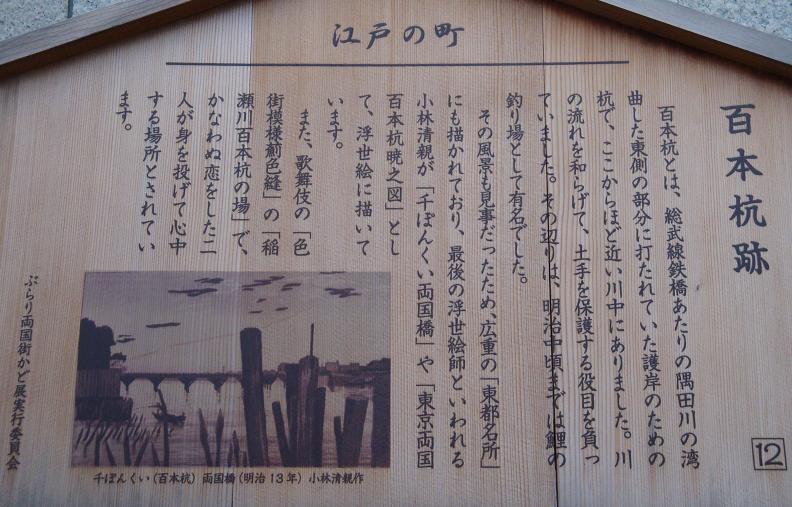 江戸の町
百本杭跡
百本杭とは、総武線鉄橋あたりの隅田川の湾
曲した東側の部分に打たれていた護岸のための
杭で、ここからほど近い川中にありました。川
の流れを和らげて、土手を保護する役目を負っ
ていました。その辺りは、明治中頃までは鯉の
釣り場として有名でした。
その風景も見事だったため、広重の「東都名所」
にも描かれており、最後の浮世絵師といわれる
小林清親が「千ぼんくい両国橋」や「東京両国
百本杭暁之図」とし
て、浮世絵に描いて
います。
また、歌舞伎の「色
街模様薊色縫」の「稲
瀬川百本杭の場」で、
かなわぬ恋をした二
人が身を投げて心中
する場所とされてい
ます。
千ぼんくい(百本杭) 両国橋(明治13年) 小林清親作
ぶらり両国街かど展実行委員会
12